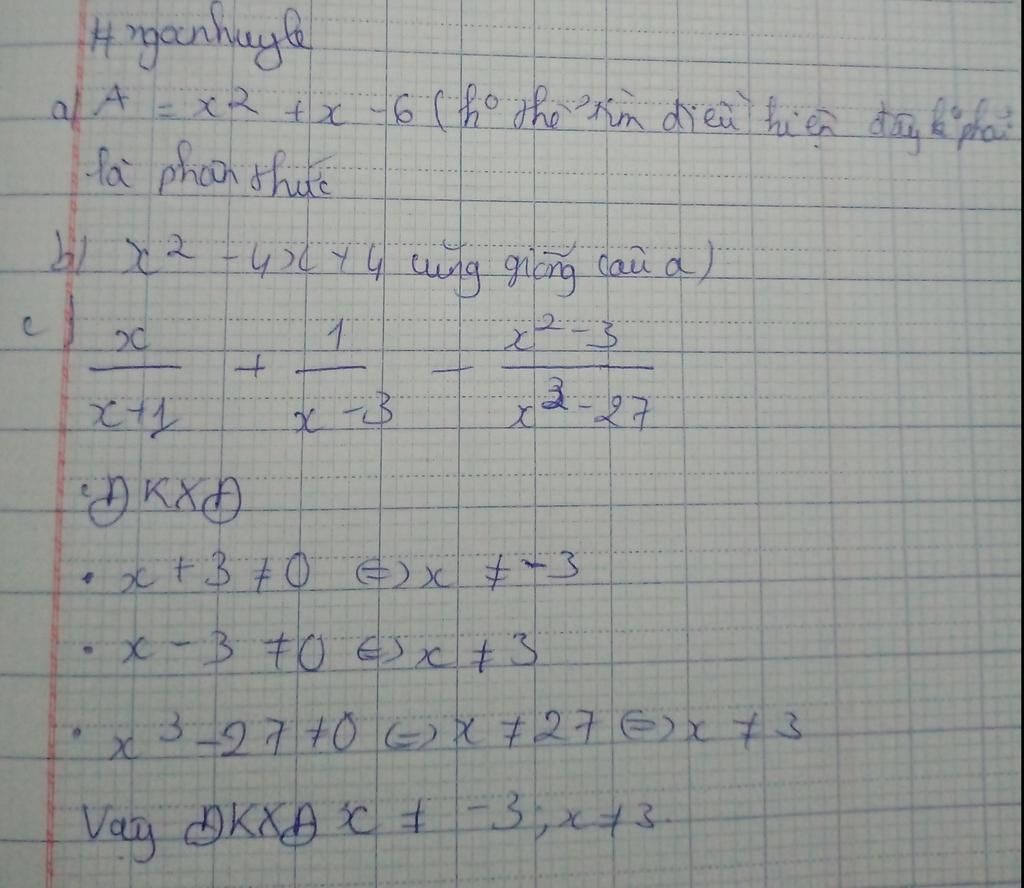 # ngocnhuyle
a) A = x² + x - 6 (k° thể tìm điều kiện đây k° phải
là phân thức
b) x² - 4x + 4 cũng giống câu a)
c) x/(x+1) + 1/(x-3) - (x²-3)/(x³-27)
ĐKXĐ
• x + 3 ≠ 0 ⇔ x ≠ -3
• x - 3 ≠ 0 ⇔ x ≠ 3
• x³ - 27 ≠ 0 ⇔ x ≠ 27 ⇔ x ≠ 3
Vậy ĐKXĐ x ≠ -3; x ≠ 3.